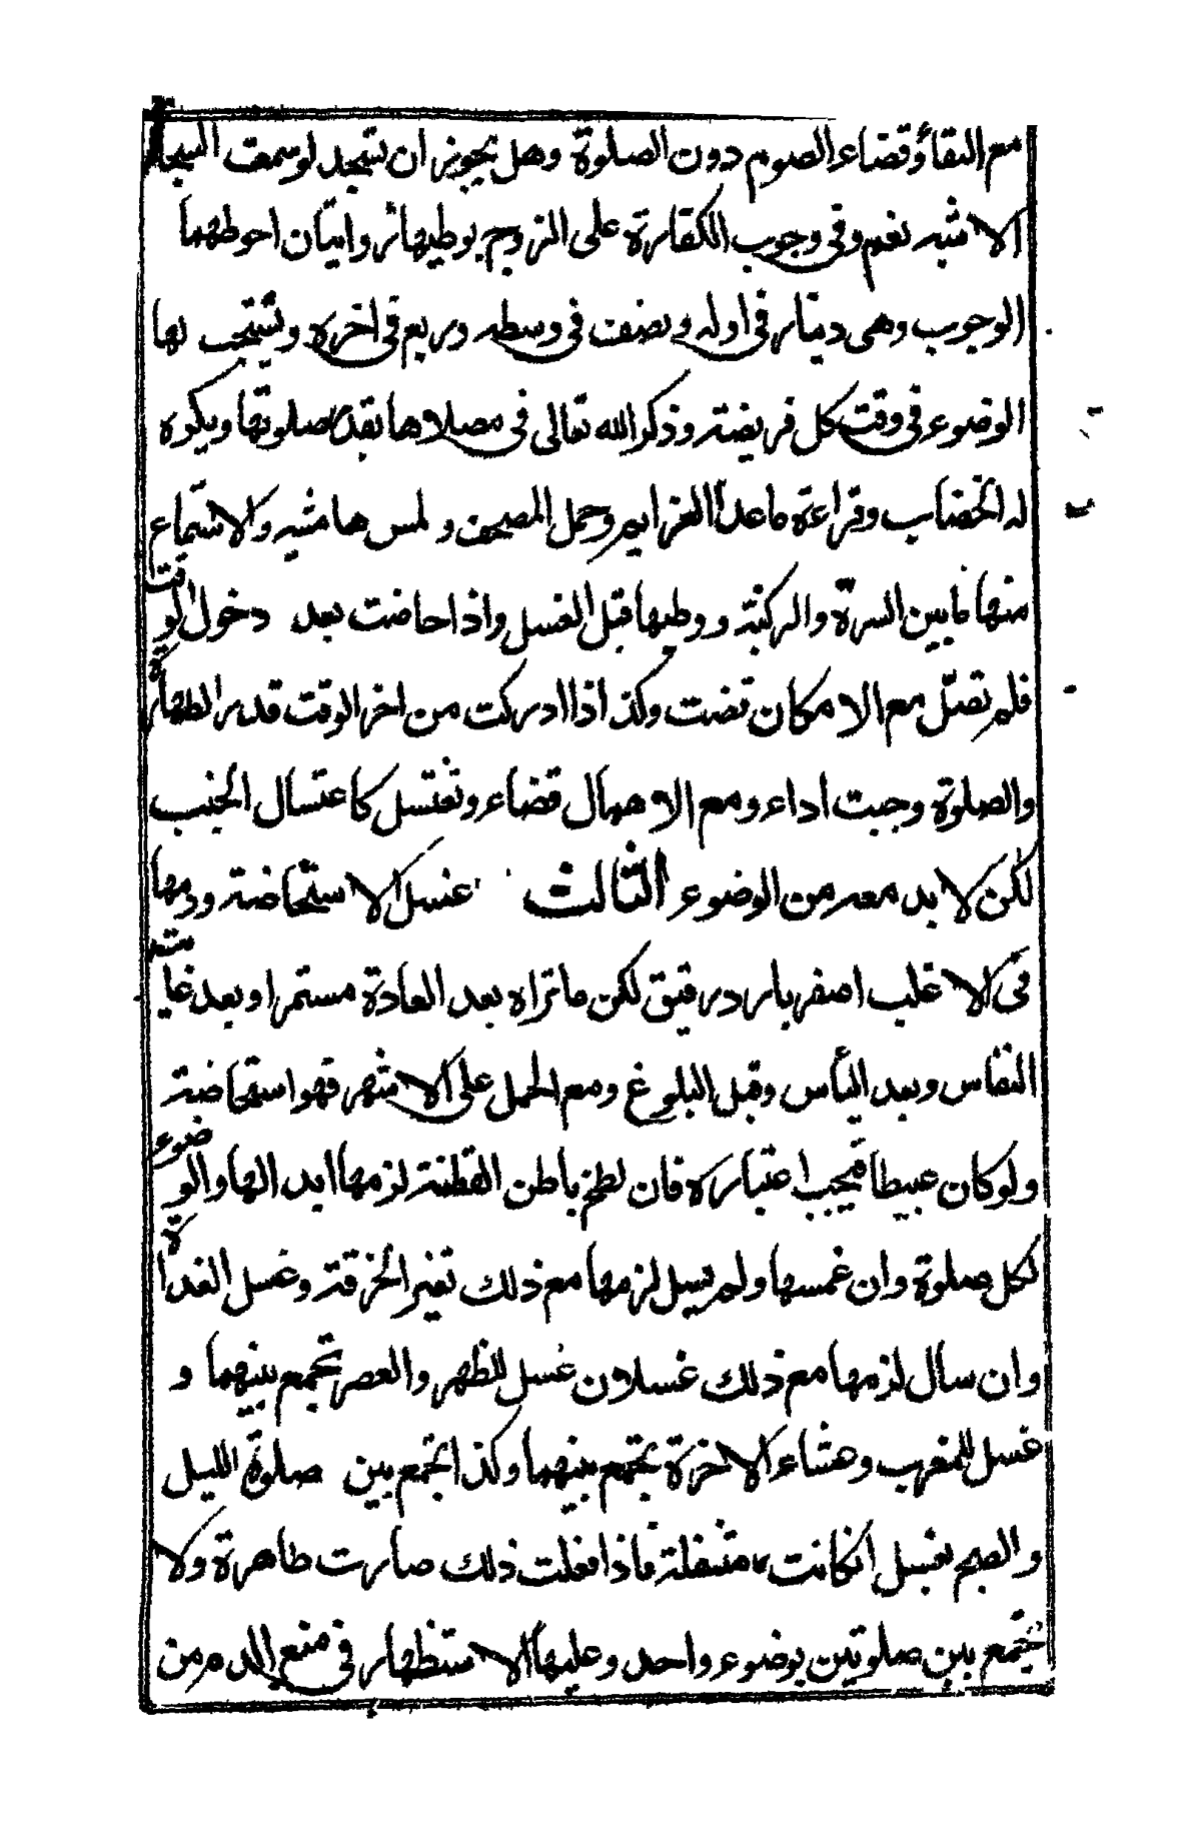 مع النقاء وقضاء الصوم دون الصلوة وهل يجوز ان تسجد لو سمعت السجدة
الاشبه نعم وفى وجوب الكفارة على الزوج بوطيها روايتان احوطهما
الوجوب وهى دينار فى اوله ونصف فى وسطه وربع فى اخره ويستحب لها
الوضوء فى وقت كل فريضة وذكر الله تعالى فى مصلاها بقدر صلوتها ويكره
له الخضاب وقراءة ماعدا العزايم وحمل المصحف ولمس هامشه والاستمتاع
منها مابين السرة والركبة ووطيها قبل الغسل واذا حاضت بعد دخول الوقت
فلم تصل مع الامكان قضت وكذا اذا ادركت من اخر الوقت قدر الطهارة
والصلوة وجبت اداء ومع الاهمال قضاء وتغتسل كاغتسال الجنب
لكن لا بد معه من الوضوء الثالث غسل الاستحاضة ودمها
فى الاغلب اصفر بارد رقيق لكن ماتراه بعد العادة مستمرا وبعد غاية
النفاس وبعد اليأس وقبل البلوغ ومع الحمل على الاشهر فهو استحاضة
ولو كان عبيطا فيجب اعتباره فان لطخ باطن القطنة لزمها ابدالها والوضوء
لكل صلوة وان غمسها ولم يسل لزمها مع ذلك تغير الخرقة وغسل الغداة
وان سال لزمها مع ذلك غسلان غسل للظهر والعصر تجمع بينهما و
غسل للمغرب وعشاء الاخرة تجمع بينهما وكذا تجمع بين صلوة الليل
والصبح بغسل انكانت متنفلة فاذا فعلت ذلك صارت طاهرة ولا
تجمع بين صلوتين بوضوء واحد وعليها الاستظهار فى منع الدم من